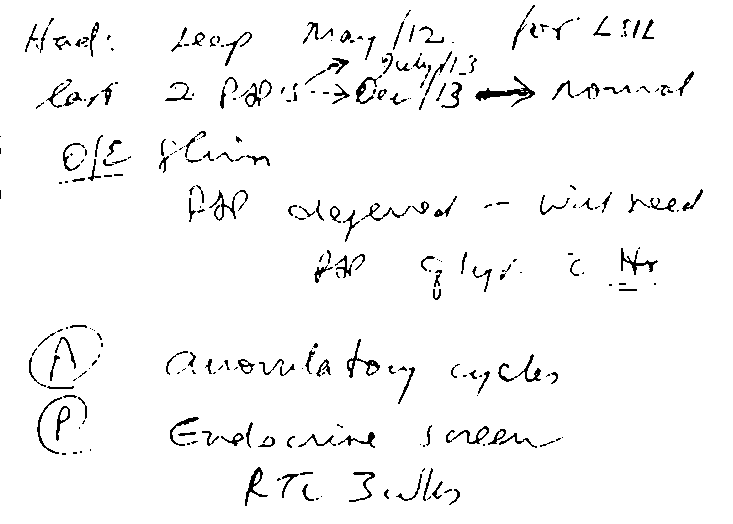 Had: Leep May/12 for LSIL
July/13
last 2 PAP's --> Dec/13 → normal
O/E Slim
PAP deferred - will need
PAP q 1yr. c̄ Hr
(A) anovulatory cycles
(P) Endocrine screen
RTC 3 wks